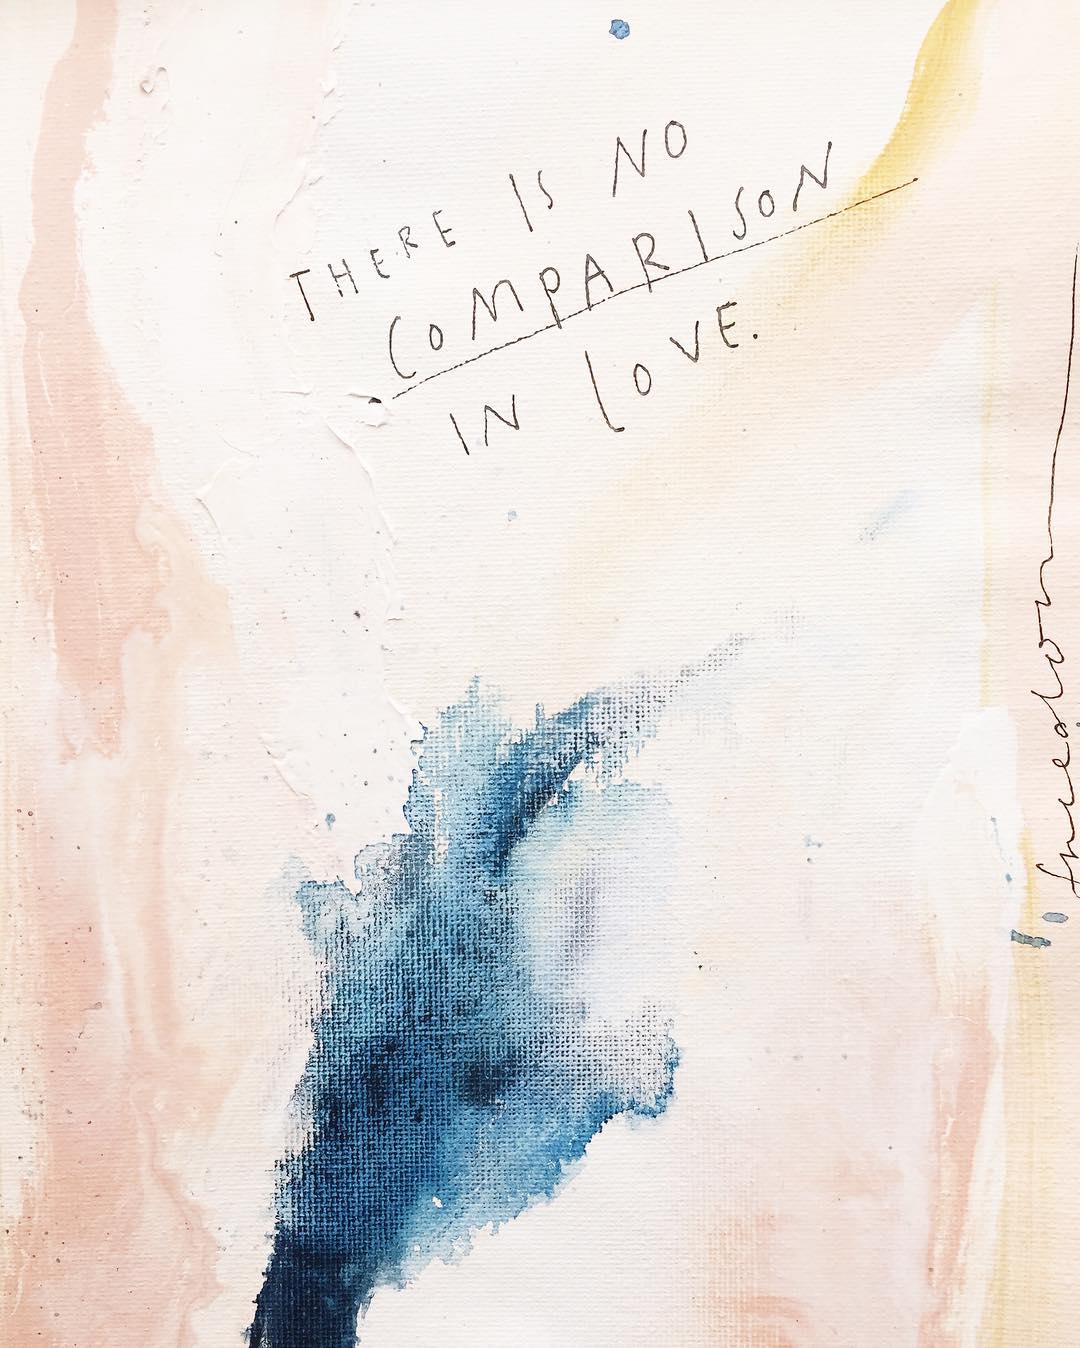 THERE IS NO
COMPARISON
IN LOVE.
freedom